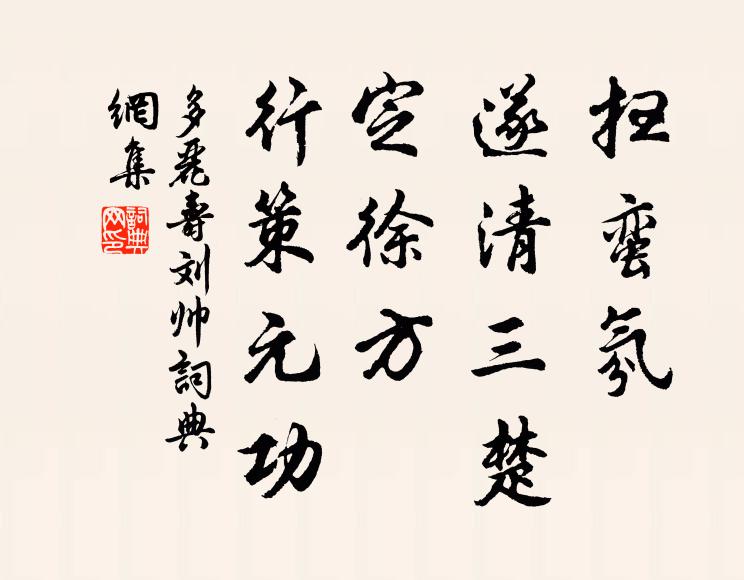 扫蛮氛
遂清三楚
定徐方
行策元功
多麗寿刘帅詞典
網集
詞典
网印